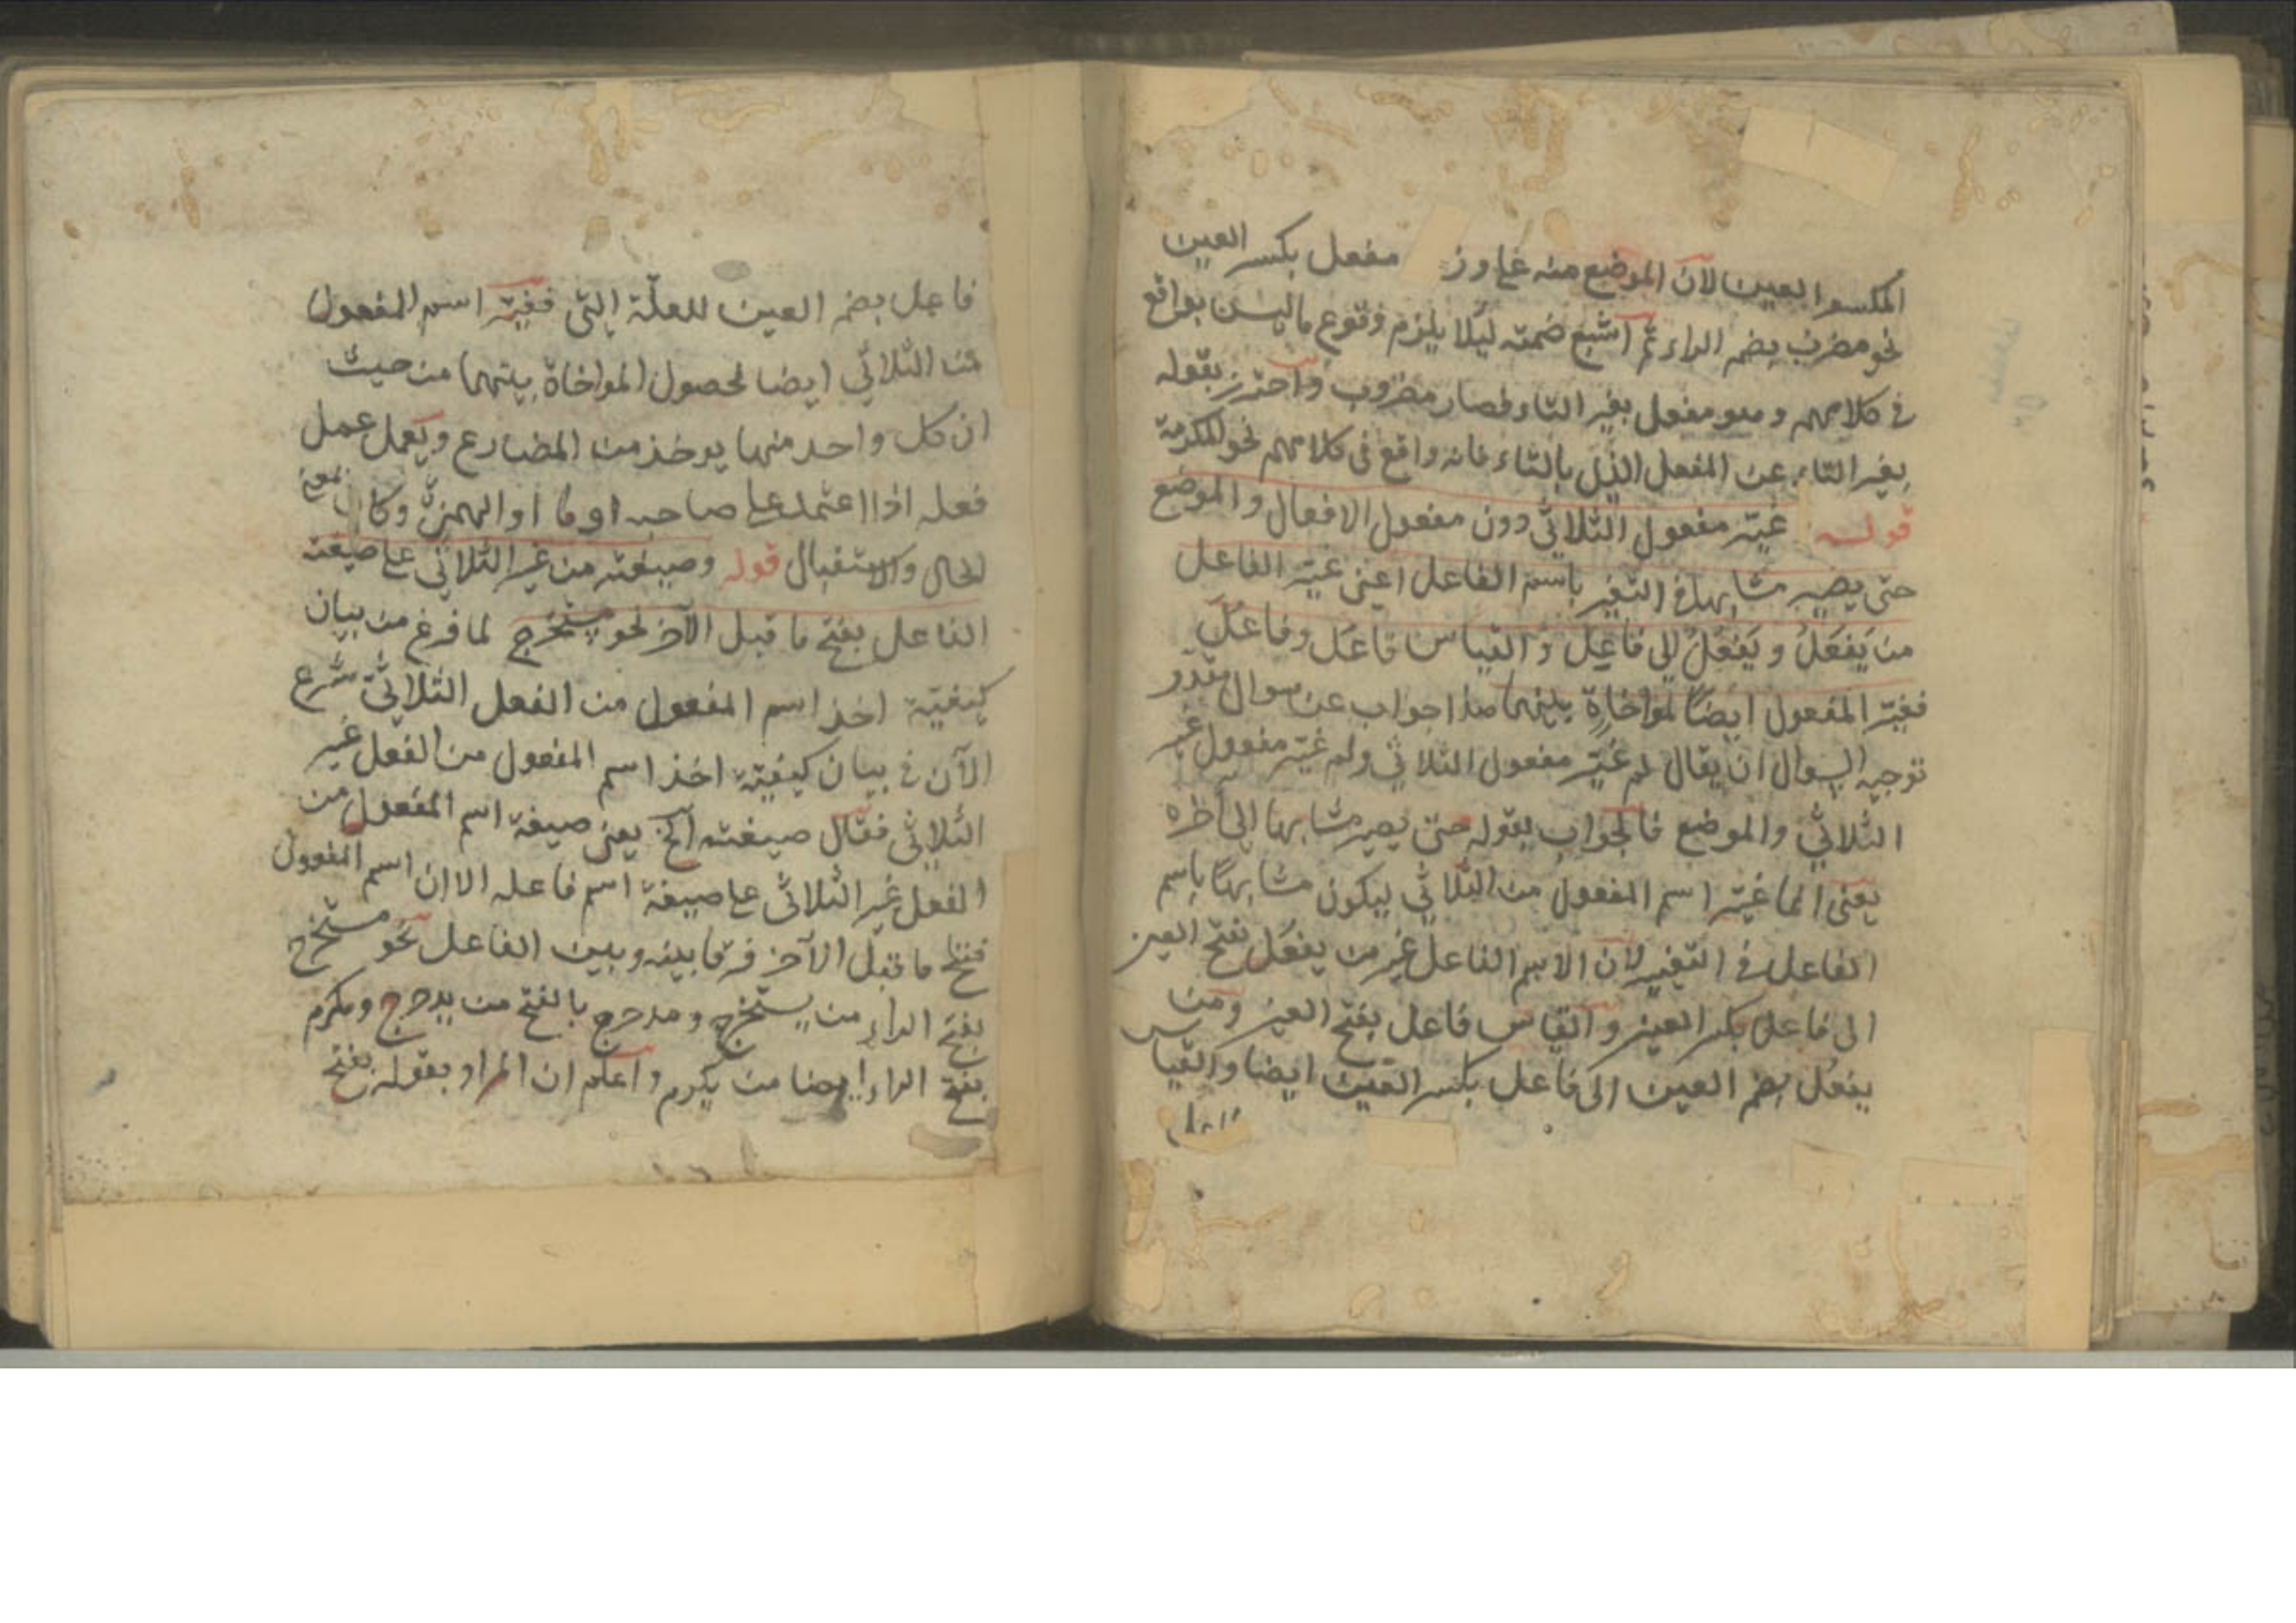 المكسور العين لان الموضع منه على وزن مفعل بكسر العين
نحو مضرب بضم الراء ثم اشبع ضمته ليلا يلزم وقوع ما ليس بواقع
في كلامهم وهو مفعل بغير التاء فصار مضروب واحترز بقوله
بغير التاء عن المفعل الذي بالتاء فانه واقع في كلامهم نحو المكرمة
قوله غيّر مفعول الثلاثي دون مفعول الافعال والموضع
حتى يصير مشابها في التغير باسم الفاعل اعنى غيّر الفاعل
من يَفعَلُ ويَفعُلُ الى فاعِل والقياس فاعَل وفاعُل
فغيّر المفعول ايضًا لمواخاة بينهما هذا جواب عن سوال مقدر
توجيه السوال ان يقال لم غيّر مفعول الثلاثي ولم غيّر مفعول غير
الثلاثي والموضع فالجواب بقوله حتى يصير مشابها الى آخره
يعنى انما غيّر اسم المفعول من الثلاثي ليكون مشابهًا باسم
الفاعل في التغيير لان الاسم الفاعل غير من يفعَل بفتح العين
الى فاعل بكسر العين والقياس فاعل بفتح العين ومن
يفعُل بضم العين الى فاعل بكسر العين ايضا والقياس
فاعل
فاعل بضم العين للعلّة التي فغيّر اسم المفعول
من الثلاثي ايضا لحصول المواخاة بينهما من حيث
ان كل واحد منهما يوخذ من المضارع ويعمل عمل
فعله اذا اعتمد على صاحبه او ما او الهمزة وكان بمعنى
الحال والاستقبال قوله وصيغته من غير الثلاثي على صيغة
الفاعل بفتح ما قبل الآخر نحو مستخرج لما فرغ من بيان
كيفيّة اخذ اسم المفعول من الفعل الثلاثيّ شرع
الآن في بيان كيفيّة اخذ اسم المفعول من الفعل غير
الثلاثي فقال صيغته الخ يعنى صيغة اسم المفعول من
الفعل غير الثلاثي على صيغة اسم فاعله الا ان اسم المفعول
فتح ما قبل الآخر فرقا بينه وبين الفاعل نحو مستخرج
بفتح الراء من يستخرج ومدحرج بالفتح من يدحرج ومكرم
بفتح الراء ايضا من يكرم واعلم ان المراد بقوله بفتح